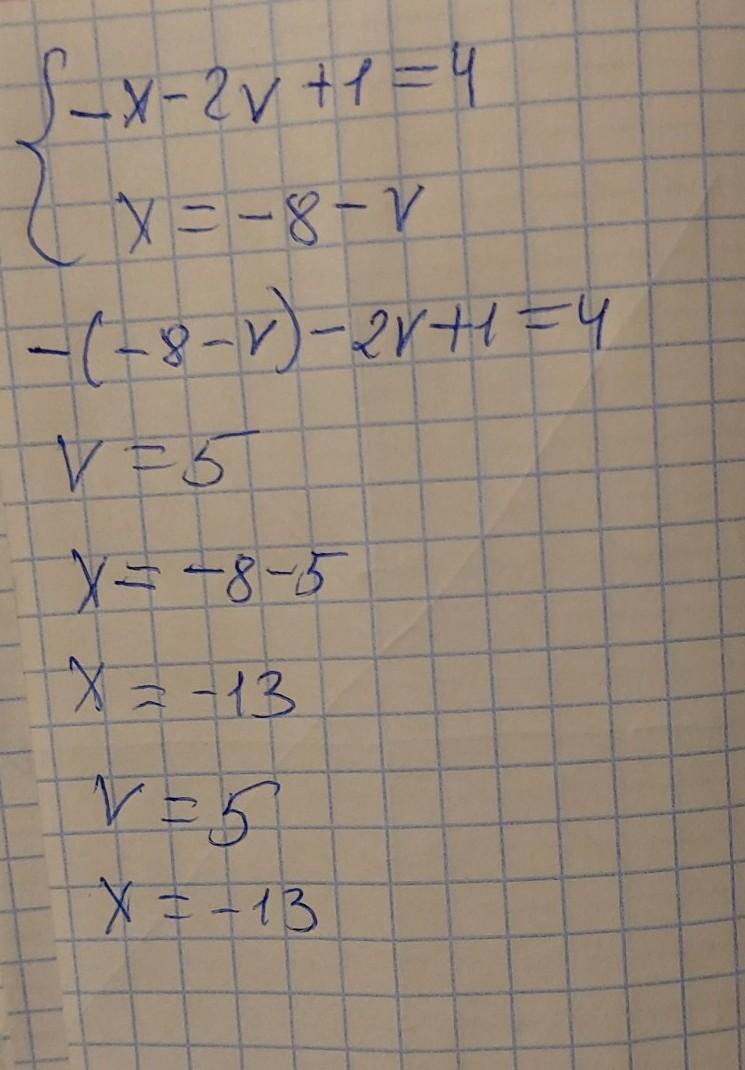 -x-2v+1=4
x=-8-v
-(-8-v)-2v+1=4
v=5
x=-8-5
x=-13
v=5
x=-13